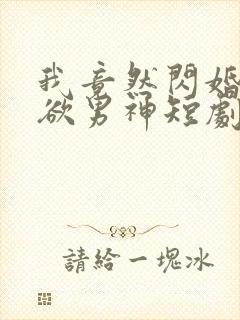 我竟然閃婚
欲男神短劇
請給一塊冰